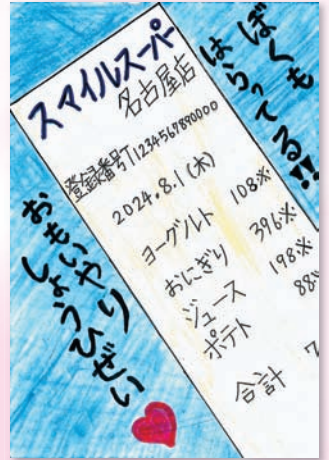 ぼくも
はらってる!!
スマイルスーパー
名古屋店
登録番号T1234567890000
2024.8.1(木)
ヨーグルト 108※
おにぎり 396※
ジュース 198※
ポテト 88※
合計 7
おもいやり
しょうひぜい